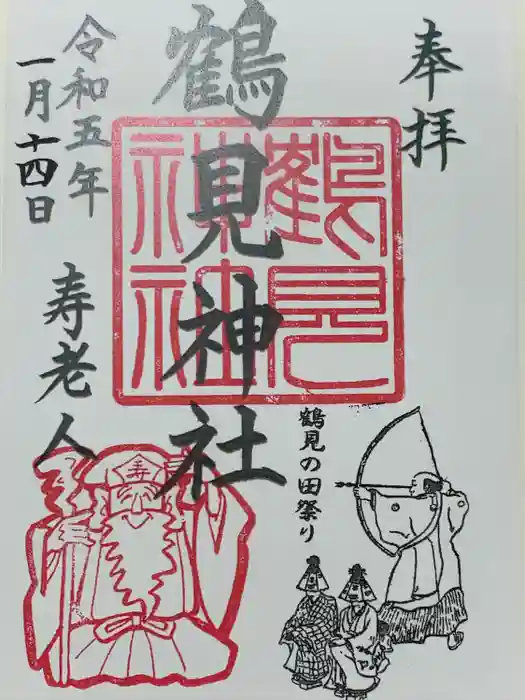 奉拝
鶴見神社
鶴見
神社
令和五年
一月十四日
寿老人
寿
鶴見の田祭り